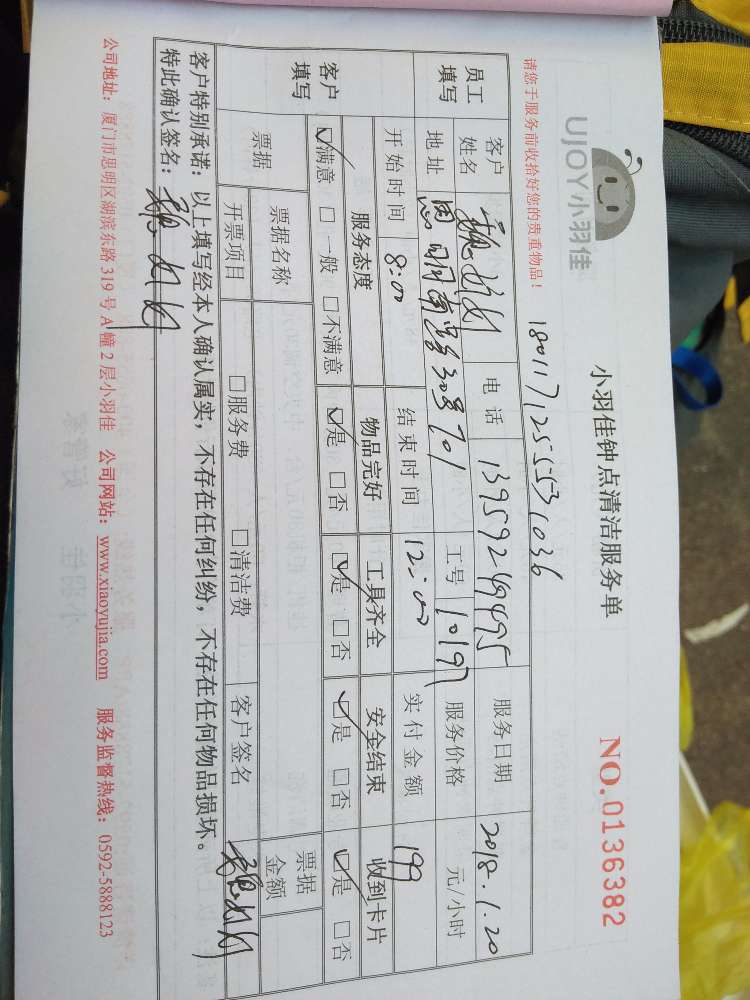 UJOY小羽佳
小羽佳钟点清洁服务单
NO.0136382
请您于服务前收拾好您的贵重物品！
1801171255531036
员工填写
客户姓名 电话 13959249495 服务日期 2018.1.20
地址 工号 10197 服务价格 元/小时
开始时间 8:00 结束时间 12:00 实付金额 199
客户填写
服务态度 物品完好 工具齐全 安全结束 收到卡片
☑满意 □一般 □不满意 ☑是 □否 ☑是 □否 ☑是 □否 ☑是 □否
票据 票据名称 票据金额
开票项目 □服务费 □清洁费 客户签名
客户特别承诺：以上填写经本人确认属实，不存在任何纠纷，不存在任何物品损坏。
特此确认签名：
公司地址：厦门市思明区湖滨东路 319 号 A 幢 2 层小羽佳 公司网站：www.xiaoyujia.com 服务监督热线：0592-5888123